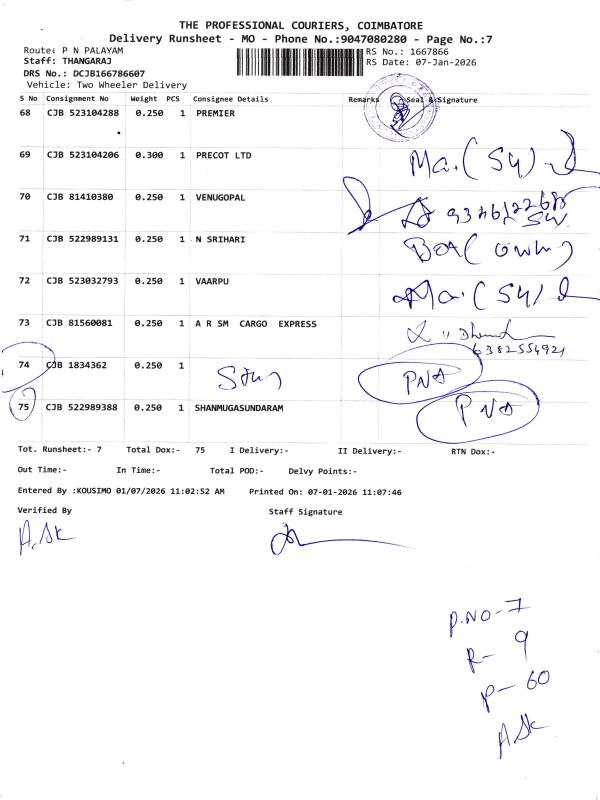 THE PROFESSIONAL COURIERS, COIMBATORE
Delivery Runsheet - MO - Phone No.:9047080280 - Page No.:7
Route: P N PALAYAM
RS No.: 1667866
Staff: THANGARAJ
RS Date: 07-Jan-2026
DRS No.: DCJB166786607
Vehicle: Two Wheeler Delivery
S No Consignment No Weight PCS Consignee Details Remarks Seal & Signature
68 CJB 523104288 0.250 1 PREMIER
69 CJB 523104206 0.300 1 PRECOT LTD
70 CJB 81410380 0.250 1 VENUGOPAL
71 CJB 522989131 0.250 1 N SRIHARI
72 CJB 523032793 0.250 1 VAARPU
73 CJB 81560081 0.250 1 A R SM CARGO EXPRESS
6382554921
74 CJB 1834362 0.250 1 PNA
75 CJB 522989388 0.250 1 SHANMUGASUNDARAM PNA
Tot. Runsheet:- 7 Total Dox:- 75 I Delivery:- II Delivery:- RTN Dox:-
Out Time:- In Time:- Total POD:- Delvy Points:-
Entered By :KOUSIMO 01/07/2026 11:02:52 AM Printed On: 07-01-2026 11:07:46
Verified By Staff Signature
P.NO-7
R- 9
P- 60